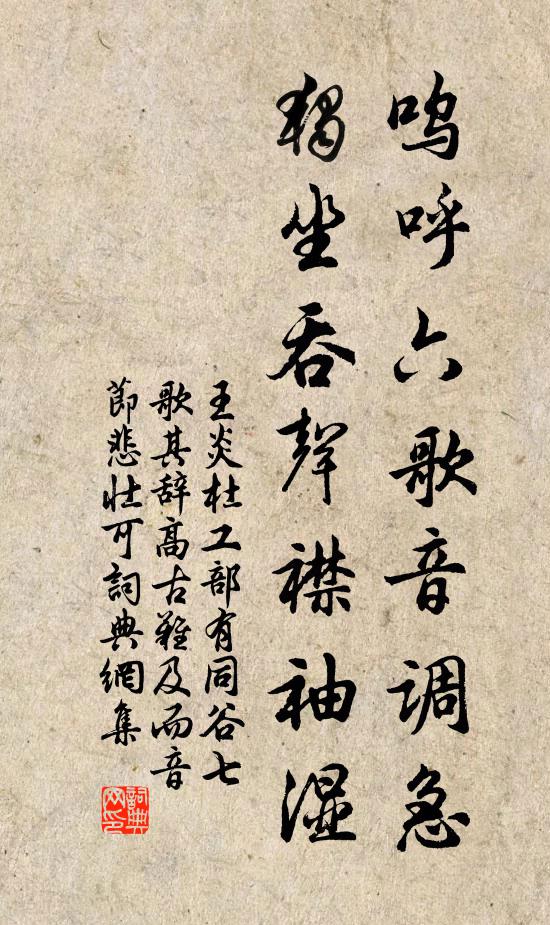 呜呼六歌音调急
独坐吞聲襟袖濕
王炎杜工部有同谷七
歌其辞高古難及而音
節悲壮可詞典網集
詞典网印